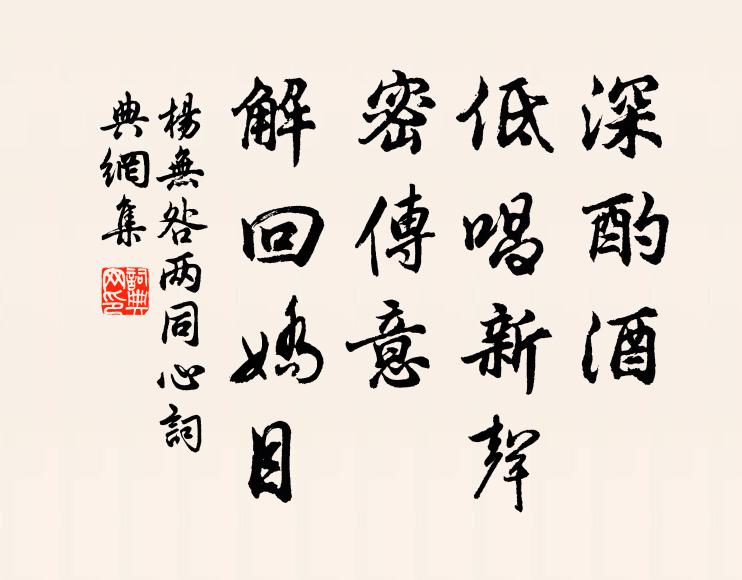 深酌酒
低唱新聲
密傳意
解回嬌目
楊無咎两同心詞
典網集
詞典
网印